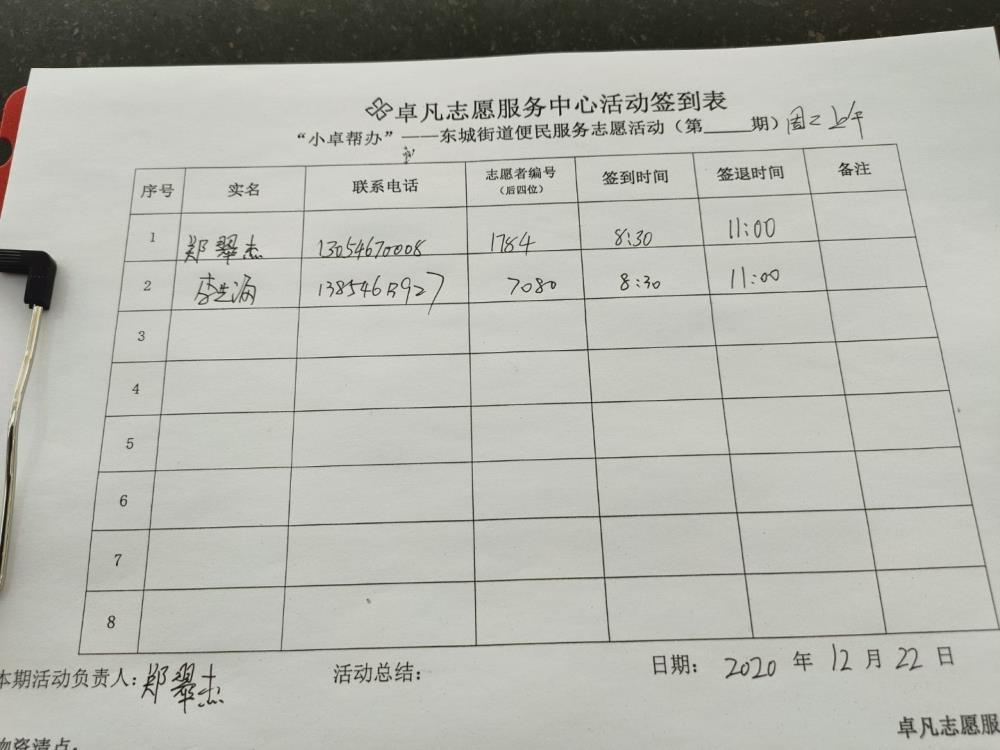 卓凡志愿服务中心活动签到表
“小卓帮办”——东城街道便民服务志愿活动（第____期）周二上午
序号 实名 联系电话 志愿者编号（后四位） 签到时间 签退时间 备注
1 郑翠杰 13054670008 1784 8:30 11:00
2 7080 8:30 11:00
3
4
5
6
7
8
本期活动负责人：郑翠杰 活动总结： 日期：2020年12月22日
卓凡志愿服
物资清点：